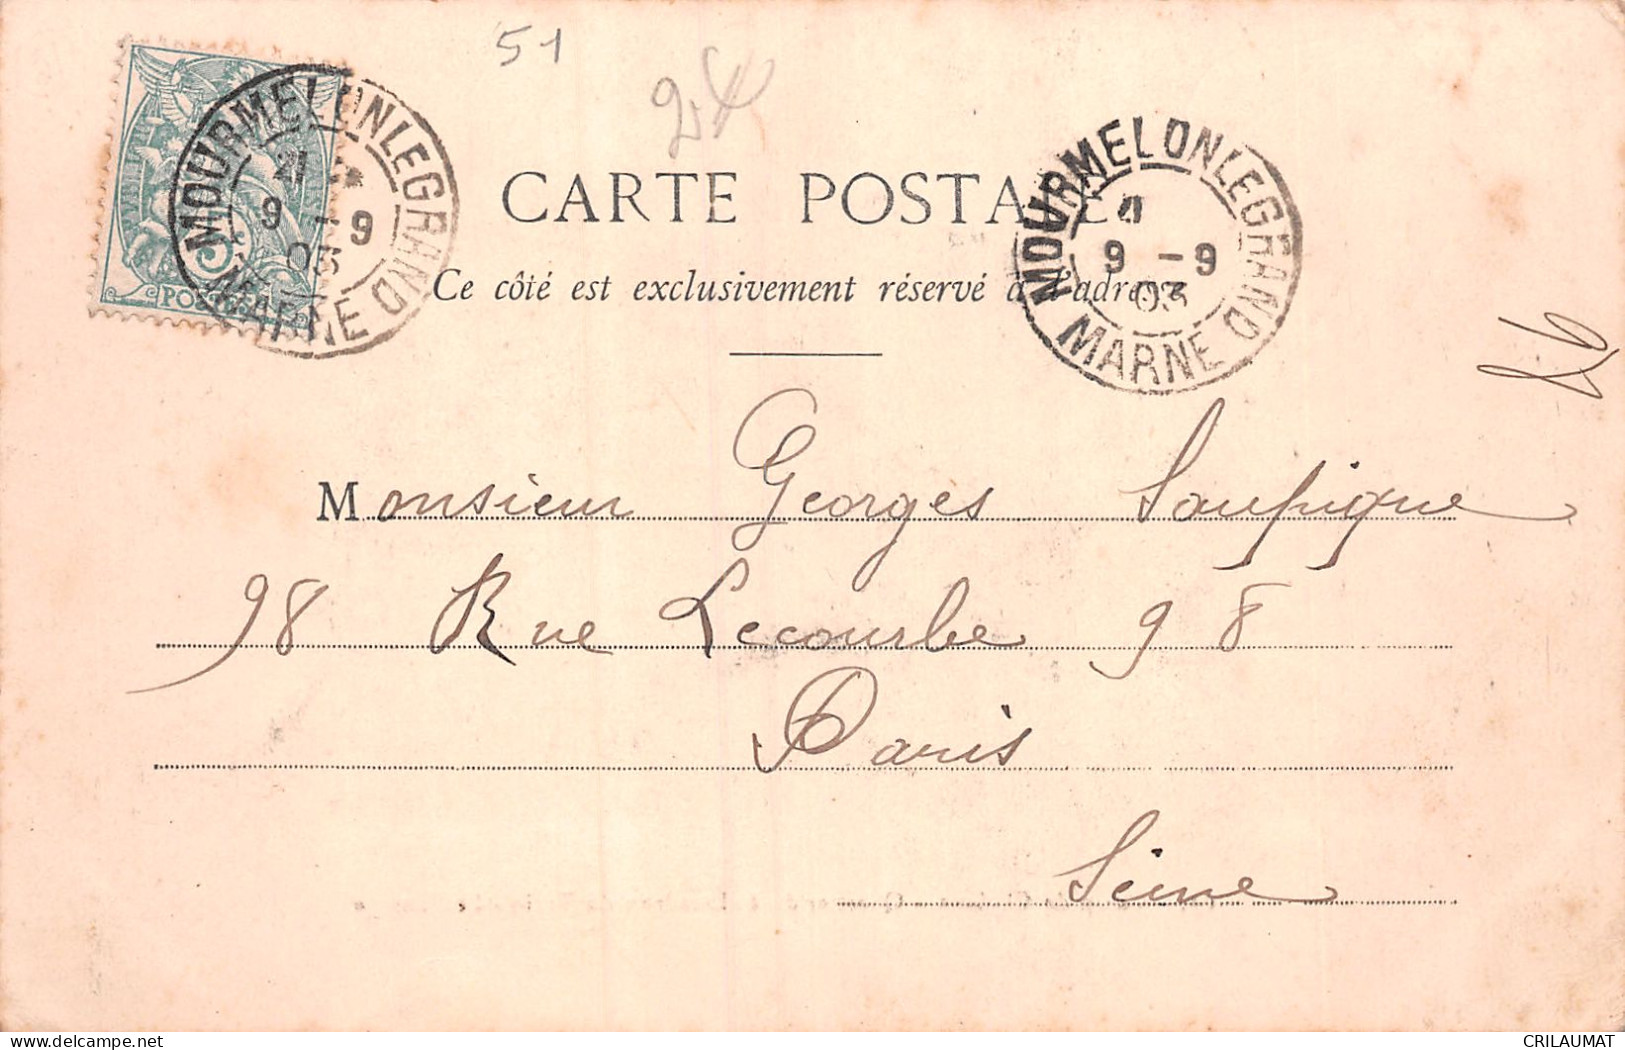 51
CARTE POSTALE
Ce côté est exclusivement réservé à l'adresse
MOURMELON LE GRAND
9 - 9
03
MARNE
MOURMELON LE GRAND
9 - 9
03
MARNE
5
Monsieur Georges Saupique
98 Rue Lecourbe 98
Paris
Seine
delcampe.net
CRILAUMAT